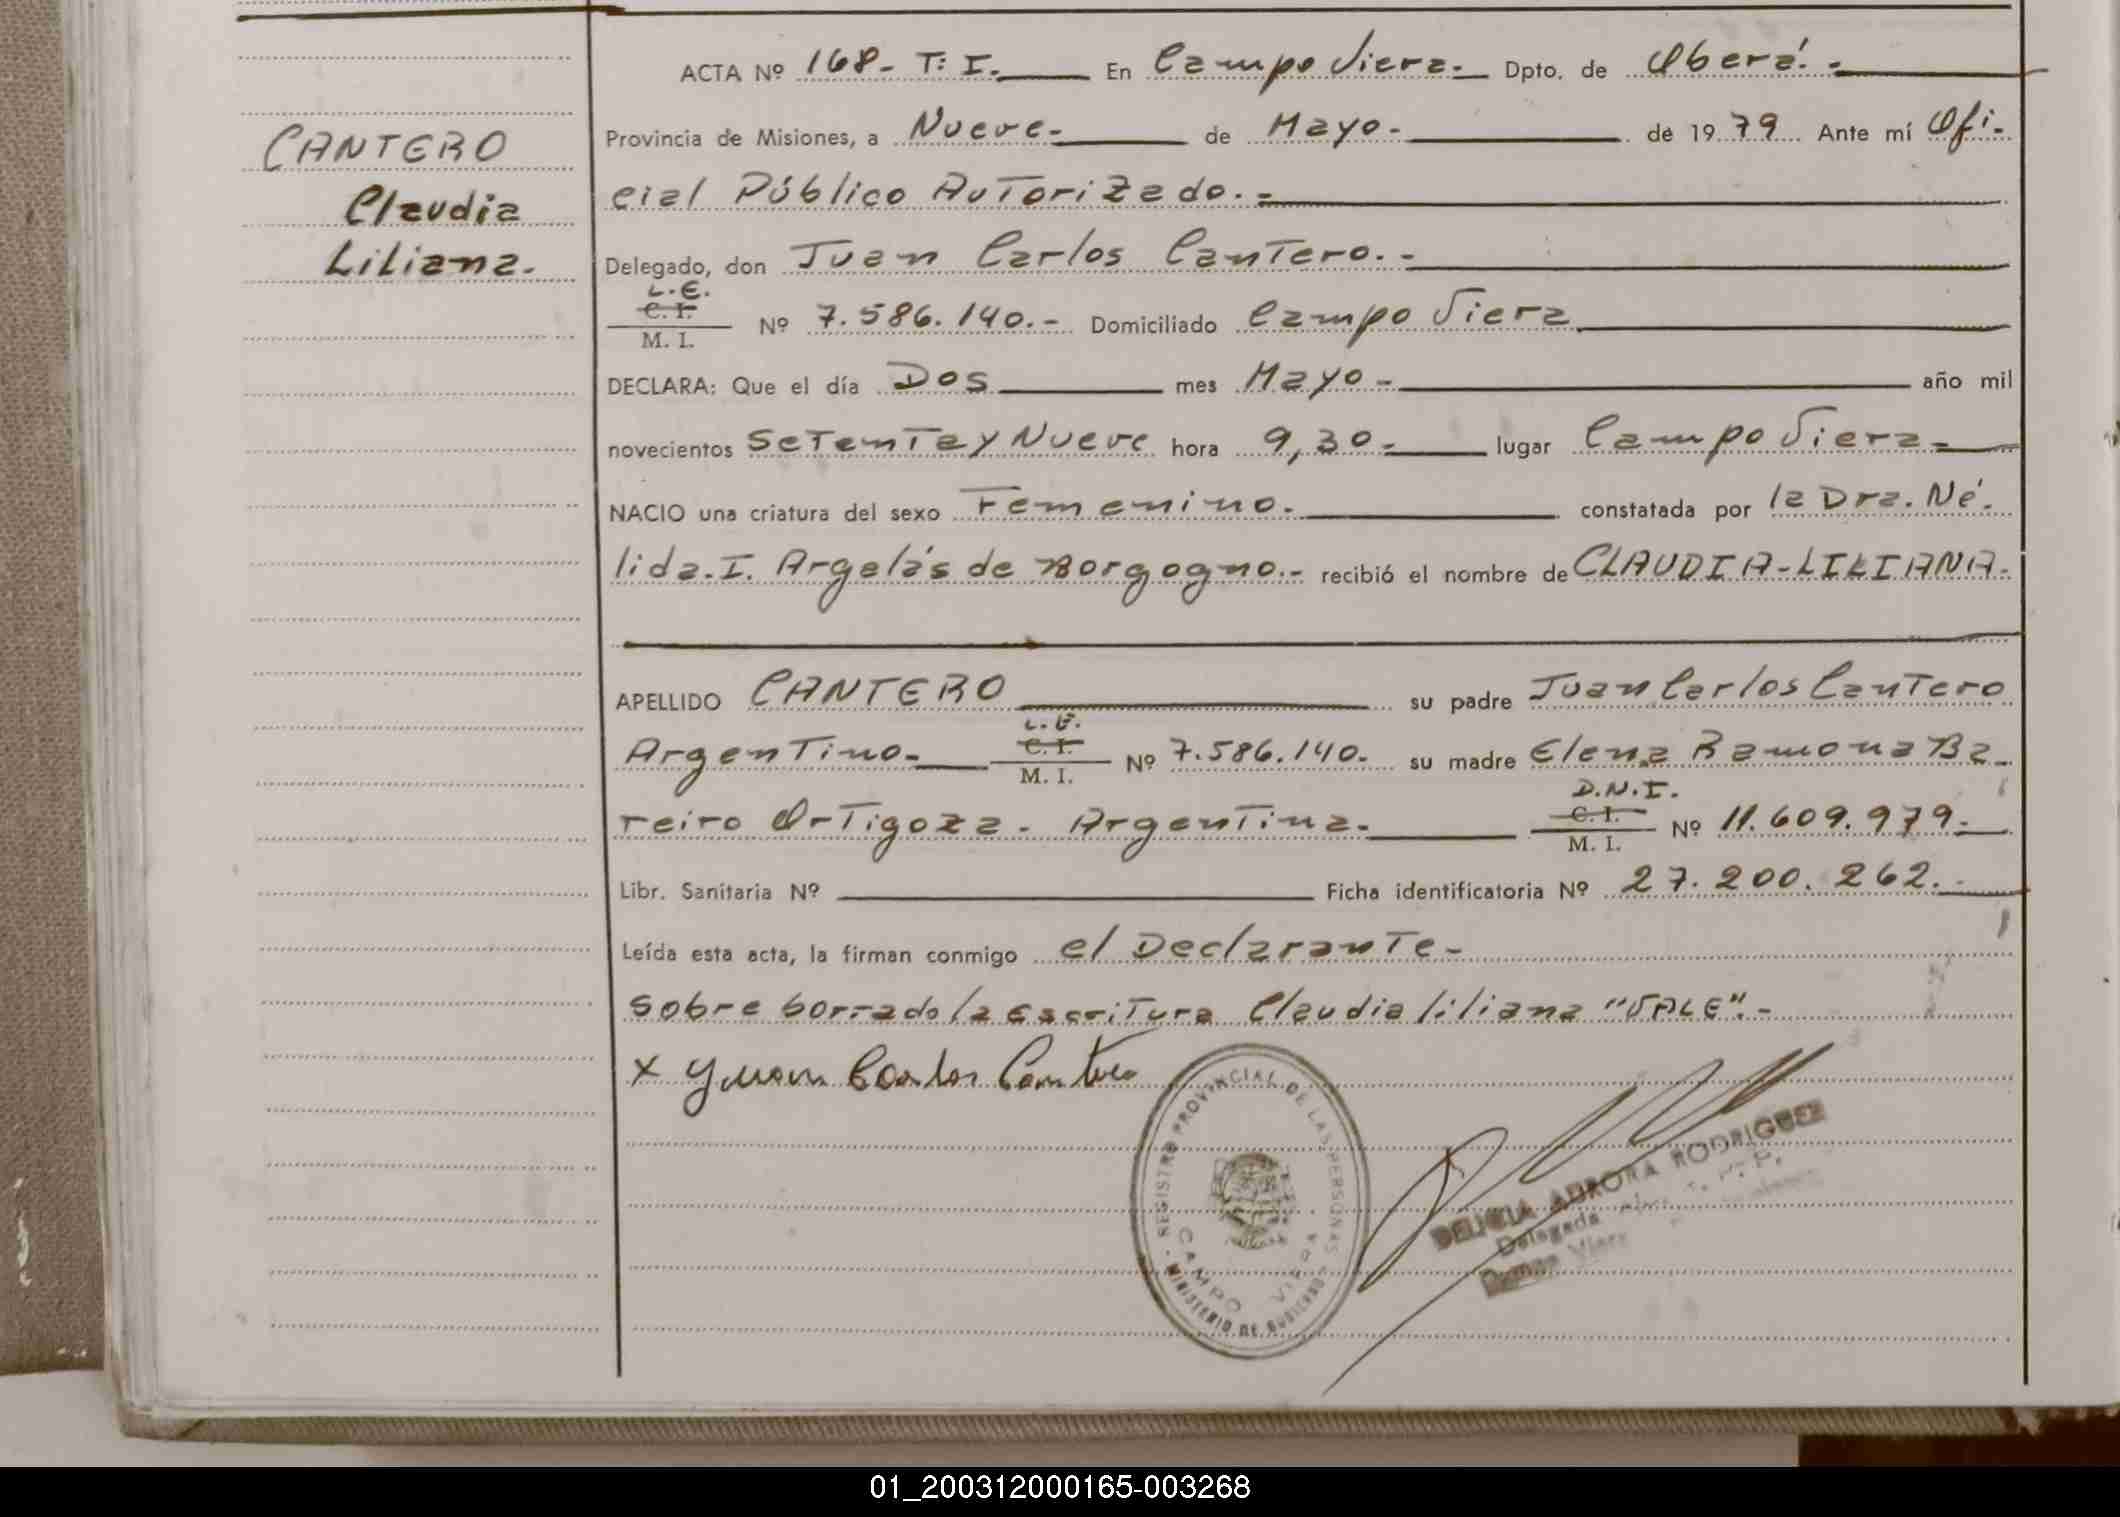 ACTA Nº 168- T: I. En Campo Viera.- Dpto. de Oberá.-
CANTERO
Claudia
Liliana.
Provincia de Misiones, a Nueve- de Mayo- de 1979 Ante mí Ofi-
cial Público Autorizado.-
Delegado, don Juan Carlos Cantero.-
L.E.
C. I.
M. I.
Nº 7.586.140.- Domiciliado Campo Viera
DECLARA: Que el día Dos mes Mayo- año mil
novecientos Setenta y Nueve hora 9,30- lugar Campo Viera-
NACIO una criatura del sexo Femenino. constatada por la Dra. Né-
lida.I. Argelás de Borgogno.- recibió el nombre de CLAUDIA-LILIANA-
APELLIDO CANTERO su padre Juan Carlos Cantero
L.E.
Argentino- C. I. Nº 7.586.140- su madre Elena Ramona Ba-
M. I.
D.N.I.
reiro Ortigoza- Argentina- C. I. Nº 11.609.979-
M. I.
Libr. Sanitaria Nº Ficha identificatoria Nº 27.200.262.-
Leída esta acta, la firman conmigo el Declarante-
Sobre borrado la escritura Claudia liliana "VALE".-
x Juan Carlos Cantero
REGISTRO PROVINCIAL DE LAS PERSONAS
CAMPO VIERA
MINISTERIO DE GOBIERNO
DELICIA AURORA RODRIGUEZ
Delegada
Viera
01_200312000165-003268